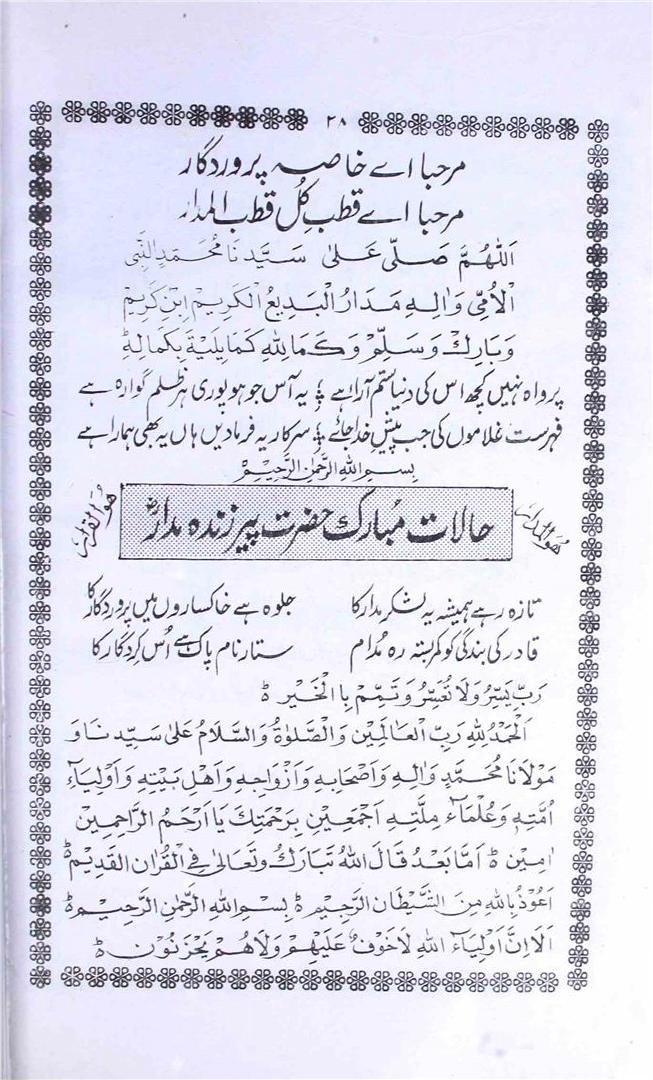 ۲۸
مرحبا اے خاصہ پروردگار
مرحبا اے قطبِ کُل قطب المدار
اَللّٰهُمَّ صَلِّی عَلٰی سَیَّدِنَا مُحَمَّدِ النَّبِی
الْاُمِّی وَاٰلِهٖ مَدَارُ الْبَدِیْعُ الْکَرِیْمِ ابْنِ کَرِیْمِ
وَبَارِكْ وَسَلِّمْ وَکَمَا لِلّٰهِ کَمَا یَلِیَةٍ بِکَمَالِهٖ
پرواہ نہیں کچھ اس کی دنیا ستم آرا ہے یہ آس جو ہو پوری ہر ظلم گوارہ ہے
فہرست غلاموں کی جب پیشِ خدا جائے سرکار یہ فرمادیں ہاں یہ بھی ہمارا ہے
بِسْمِ اللهِ الرَّحْمٰنِ الرَّحِیْمِ
ھُوَ المدار
حالات مُبارک حضرت پیر زندہ مدارؒ
ھُوَ القادر
تازہ رہے ہمیشہ یہ لشکر مدار کا جلوہ ہے خاکساروں میں پروردگار کا
قادر کی بندگی کو کمر بستہ رہ مُدام ستار نام پاک ہے اُس کردگار کا
رَبِّ یَسِّرْ وَلَا تُعَسِّرْ وَتَمِّمْ بِا الْخَیْرِ ۃ
اَلْحَمْدُ لِلّٰهِ رَبِّ الْعَالَمِیْنَ وَالصَّلٰوةُ وَالسَّلَامُ عَلٰی سَیِّدِنَا وَ
مَوْلَانَا مُحَمَّدٍ وَاٰلِهٖ وَاَصْحَابِهٖ وَاَزْوَاجِهٖ وَاَهْلِ بَیْتِهٖ وَاَوْلِیَآءِ
اُمَّتِهٖ وَعُلَمَآءِ مِلَّتِهٖ اَجْمَعِیْنَ بِرَحْمَتِكَ یَا اَرْحَمَ الرَّاحِمِیْنَ
اٰمِیْن ۃ اَمَّا بَعْدُ قَالَ اللهُ تَبَارَكَ وَتَعَالٰی فِی الْقُرْاٰنِ الْقَدِیْمِ ۃ
اَعُوْذُ بِاللهِ مِنَ الشَّیْطَانِ الرَّجِیْمِ ۃ بِسْمِ اللهِ الرَّحْمٰنِ الرَّحِیْمِ ۃ
اَلَا اِنَّ اَوْلِیَآءَ اللهِ لَاخَوْفٌ عَلَیْهِمْ وَلَا هُمْ یَحْزَنُوْنَ ۃ